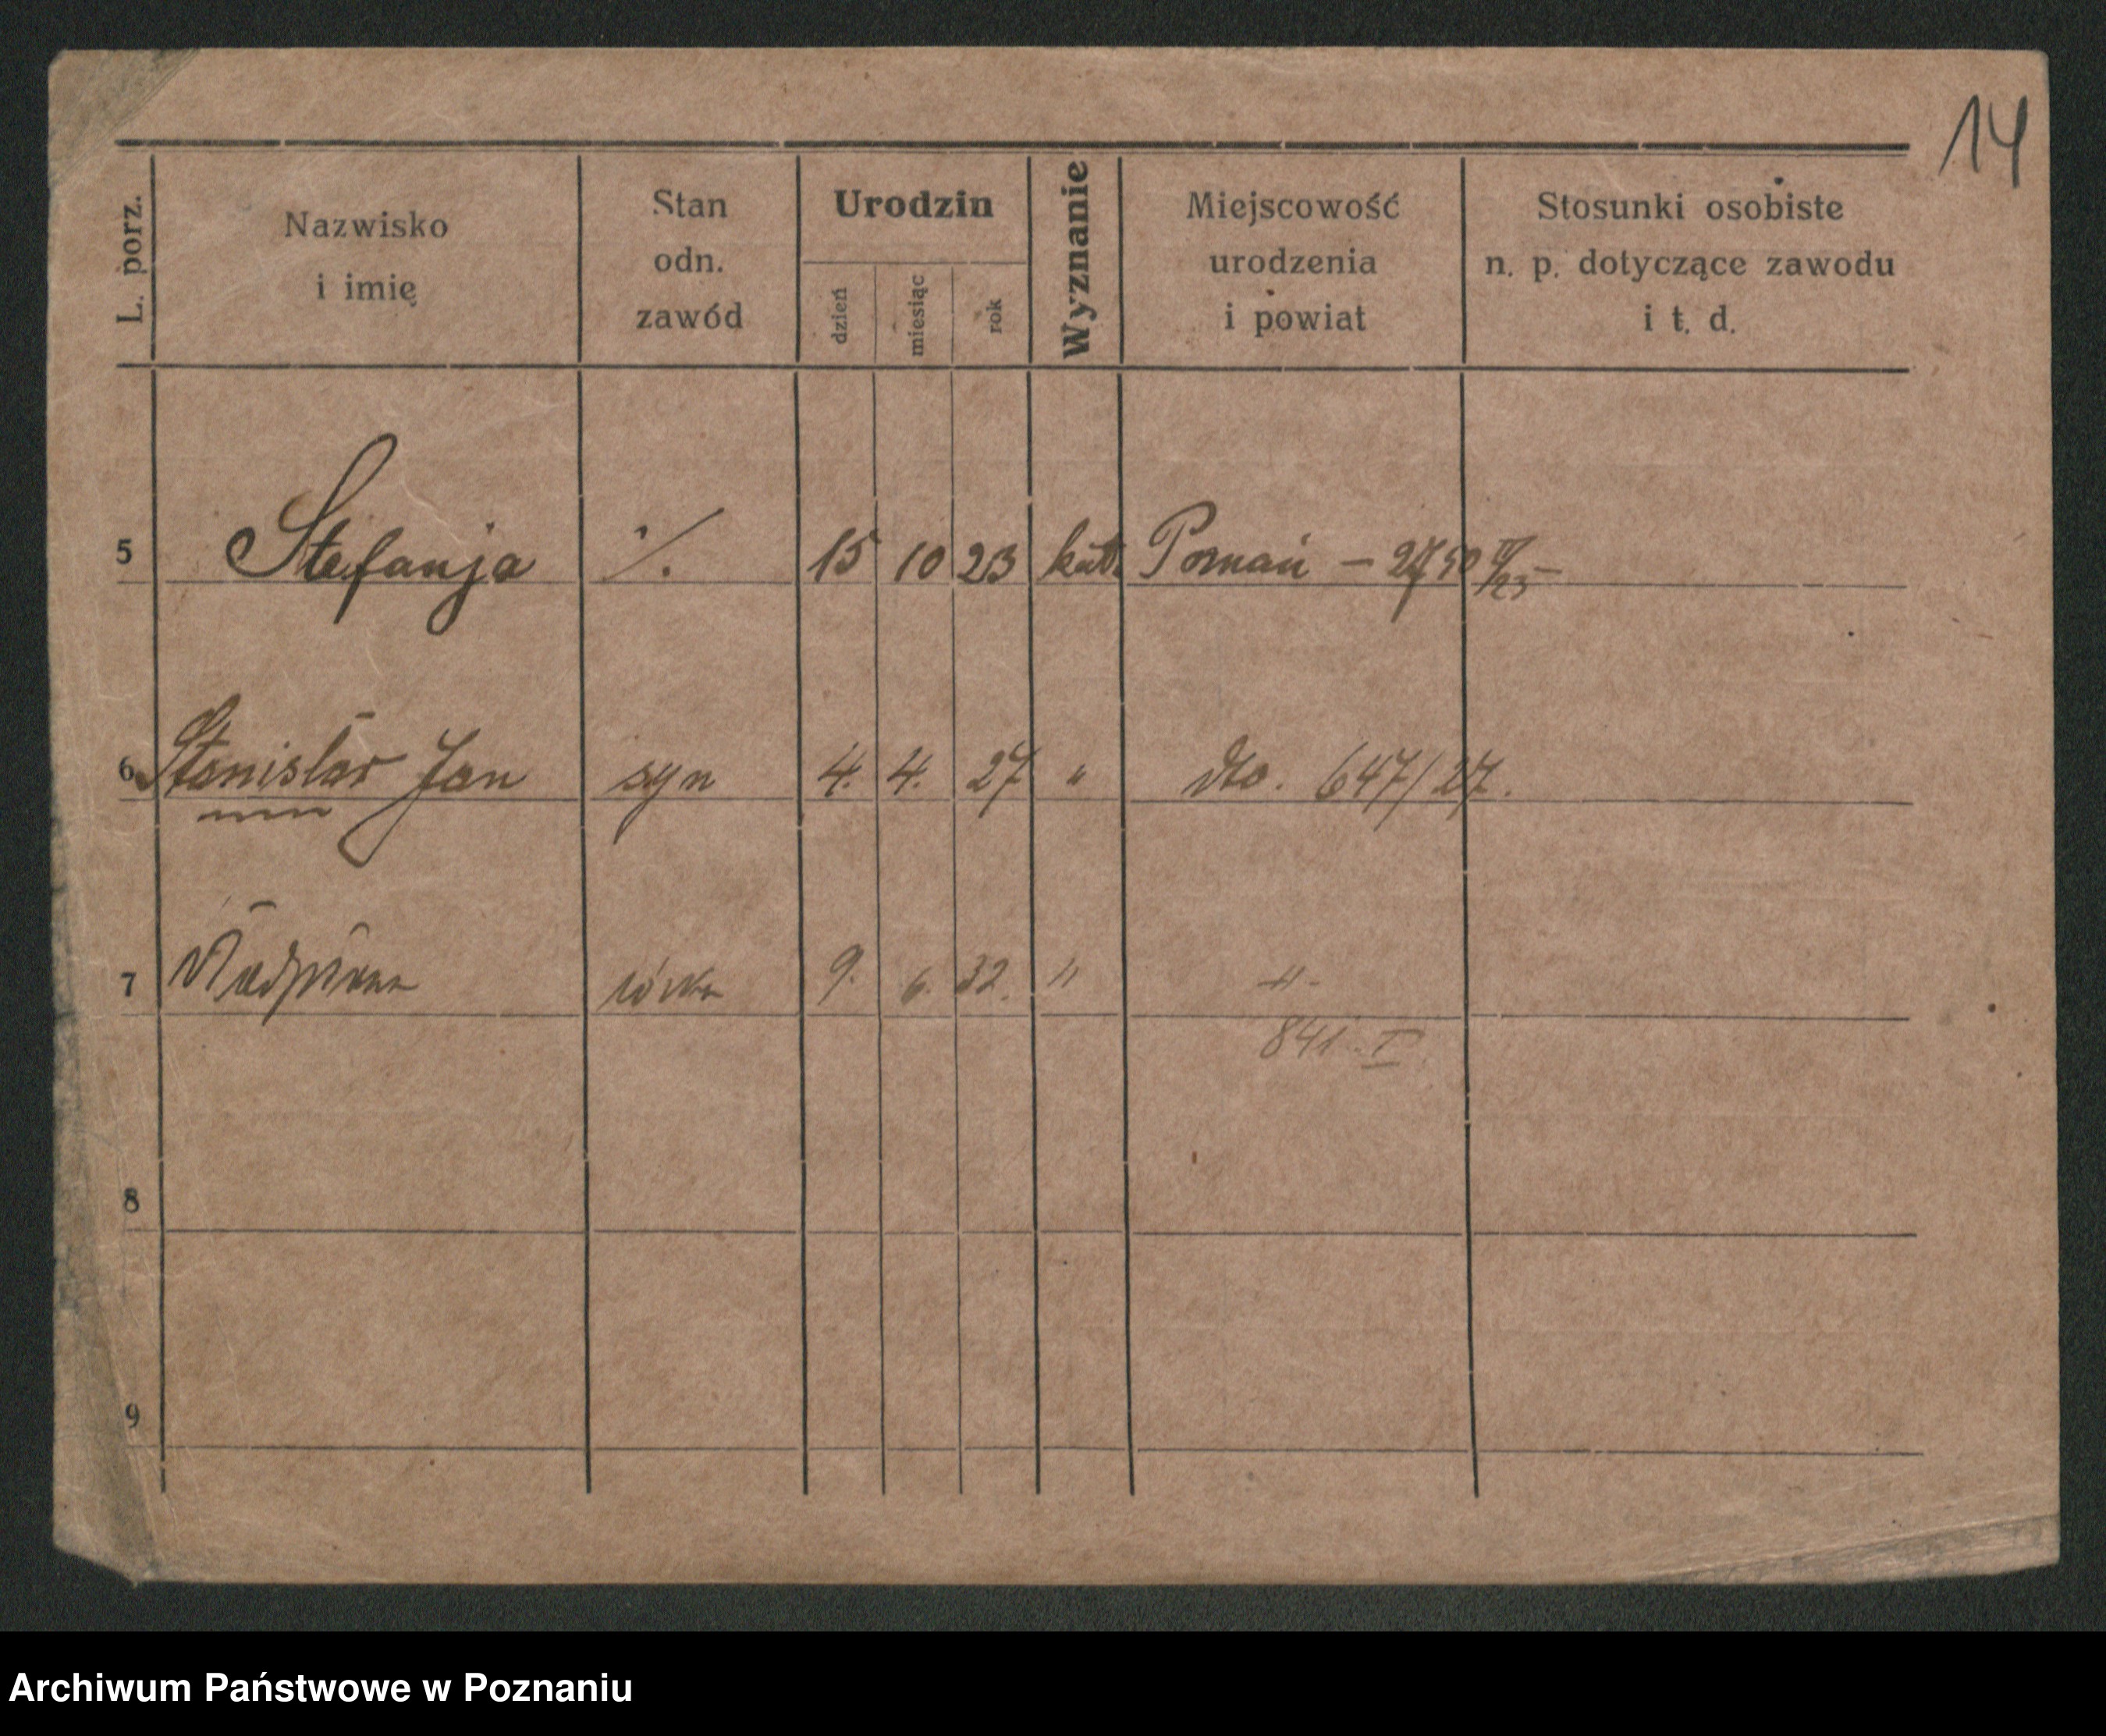 14
L. porz.
Nazwisko
i imię
Stan
odn.
zawód
Urodzin
dzień
miesiąc
rok
Wyznanie
Miejscowość
urodzenia
i powiat
Stosunki osobiste
n. p. dotyczące zawodu
i t. d.
5 Stefanja ·/. 15 10 23 kat. Poznań –
6 Stanisław Jan syn 4. 4. 27 " dto. 647/27.
7 córka 9. 6. 32. " –"–
841 I
8
9
Archiwum Państwowe w Poznaniu